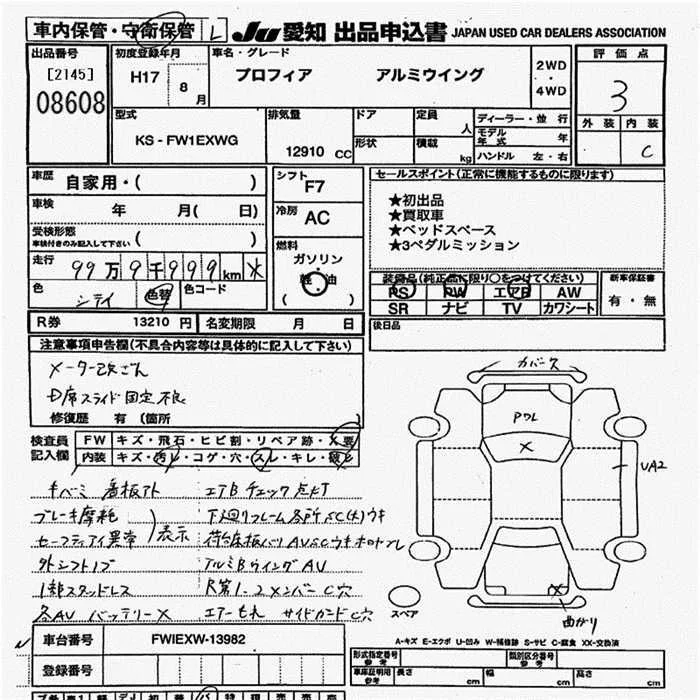 車内保管・守衛保管 L JU 愛知 出品申込書 JAPAN USED CAR DEALERS ASSOCIATION
出品番号 初度登録年月 車名・グレード 2WD・4WD 評価点
[2145] H17 8月 プロフィア アルミウイング 3
08608
型式 排気量 ドア 定員 人 ディーラー・並行 外装 内装
KS-FW1EXWG 12910 cc 形状 積載 kg モデル年式 年 C
ハンドル 左・右
車歴 自家用・( ) シフト F7 セールスポイント(正常に機能するものに限ります)
車検 年 月( 日) 冷房 AC ★初出品
★買取車
受検形態 車検付きのみ記入して下さい ( ) 燃料 ★ベッドスペース
★3ペダルミッション
走行 99万9千999km ガソリン 軽・油 ( )
色 シテイ 色替 色コード
装備品(純正品に限り○をつけてください) 新車保証書
PS PW エアB AW 有・無
SR ナビ TV カワシート
R券 13210円 名変期限 月 日 後日品
注意事項申告欄(不具合内容等は具体的に記入して下さい)
メーター改ざん
D席スライド固定不良
修復歴 有 (箇所 )
カバース
PWL
X
UA2
検査員記入欄 FW キズ・飛石・ヒビ割・リペア跡・X要
内装 キズ・汚レ・コゲ・穴・スレ・キレ・破レ
キバミ 看板アト エアBチェック点灯
ブレーキ摩耗
セーフティアイ異常 表示
外シフトノブ アルミBウイングAU
1部スタッドレス R第1-2メンバーC穴
各AU バッテリーX エアーもれ サイドガードC穴
スペア
X
曲がり
A-キズ E-エクボ U-凹み W-補修跡 S-サビ C-腐食 XX-交換済
車台番号 FWIEXW-13982
登録番号
形式指定番号 参考 類別区分番号 参考
車庫証明用 参考 長さ cm 幅 cm 高さ cm